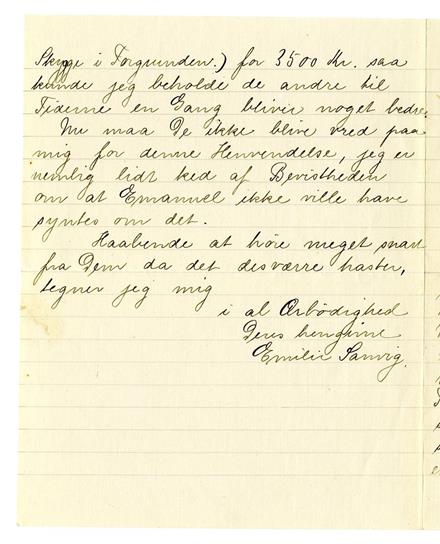 Skygge i Forgrunden.) for 3500 Kr. saa
kunde jeg beholde de andre til
Tiderne en Gang bliver noget bedre.
Nu maa De ikke blive vred paa
mig for denne Henvendelse, jeg er
nemlig lidt ked af Bevistheden
om at Emanuel ikke ville have
syntes om det.
Haabende at höre meget snart
fra Dem da det desværre haster,
tegner jeg mig
i al Ærbödighed
Deres hengivne
Emilie Sannig.